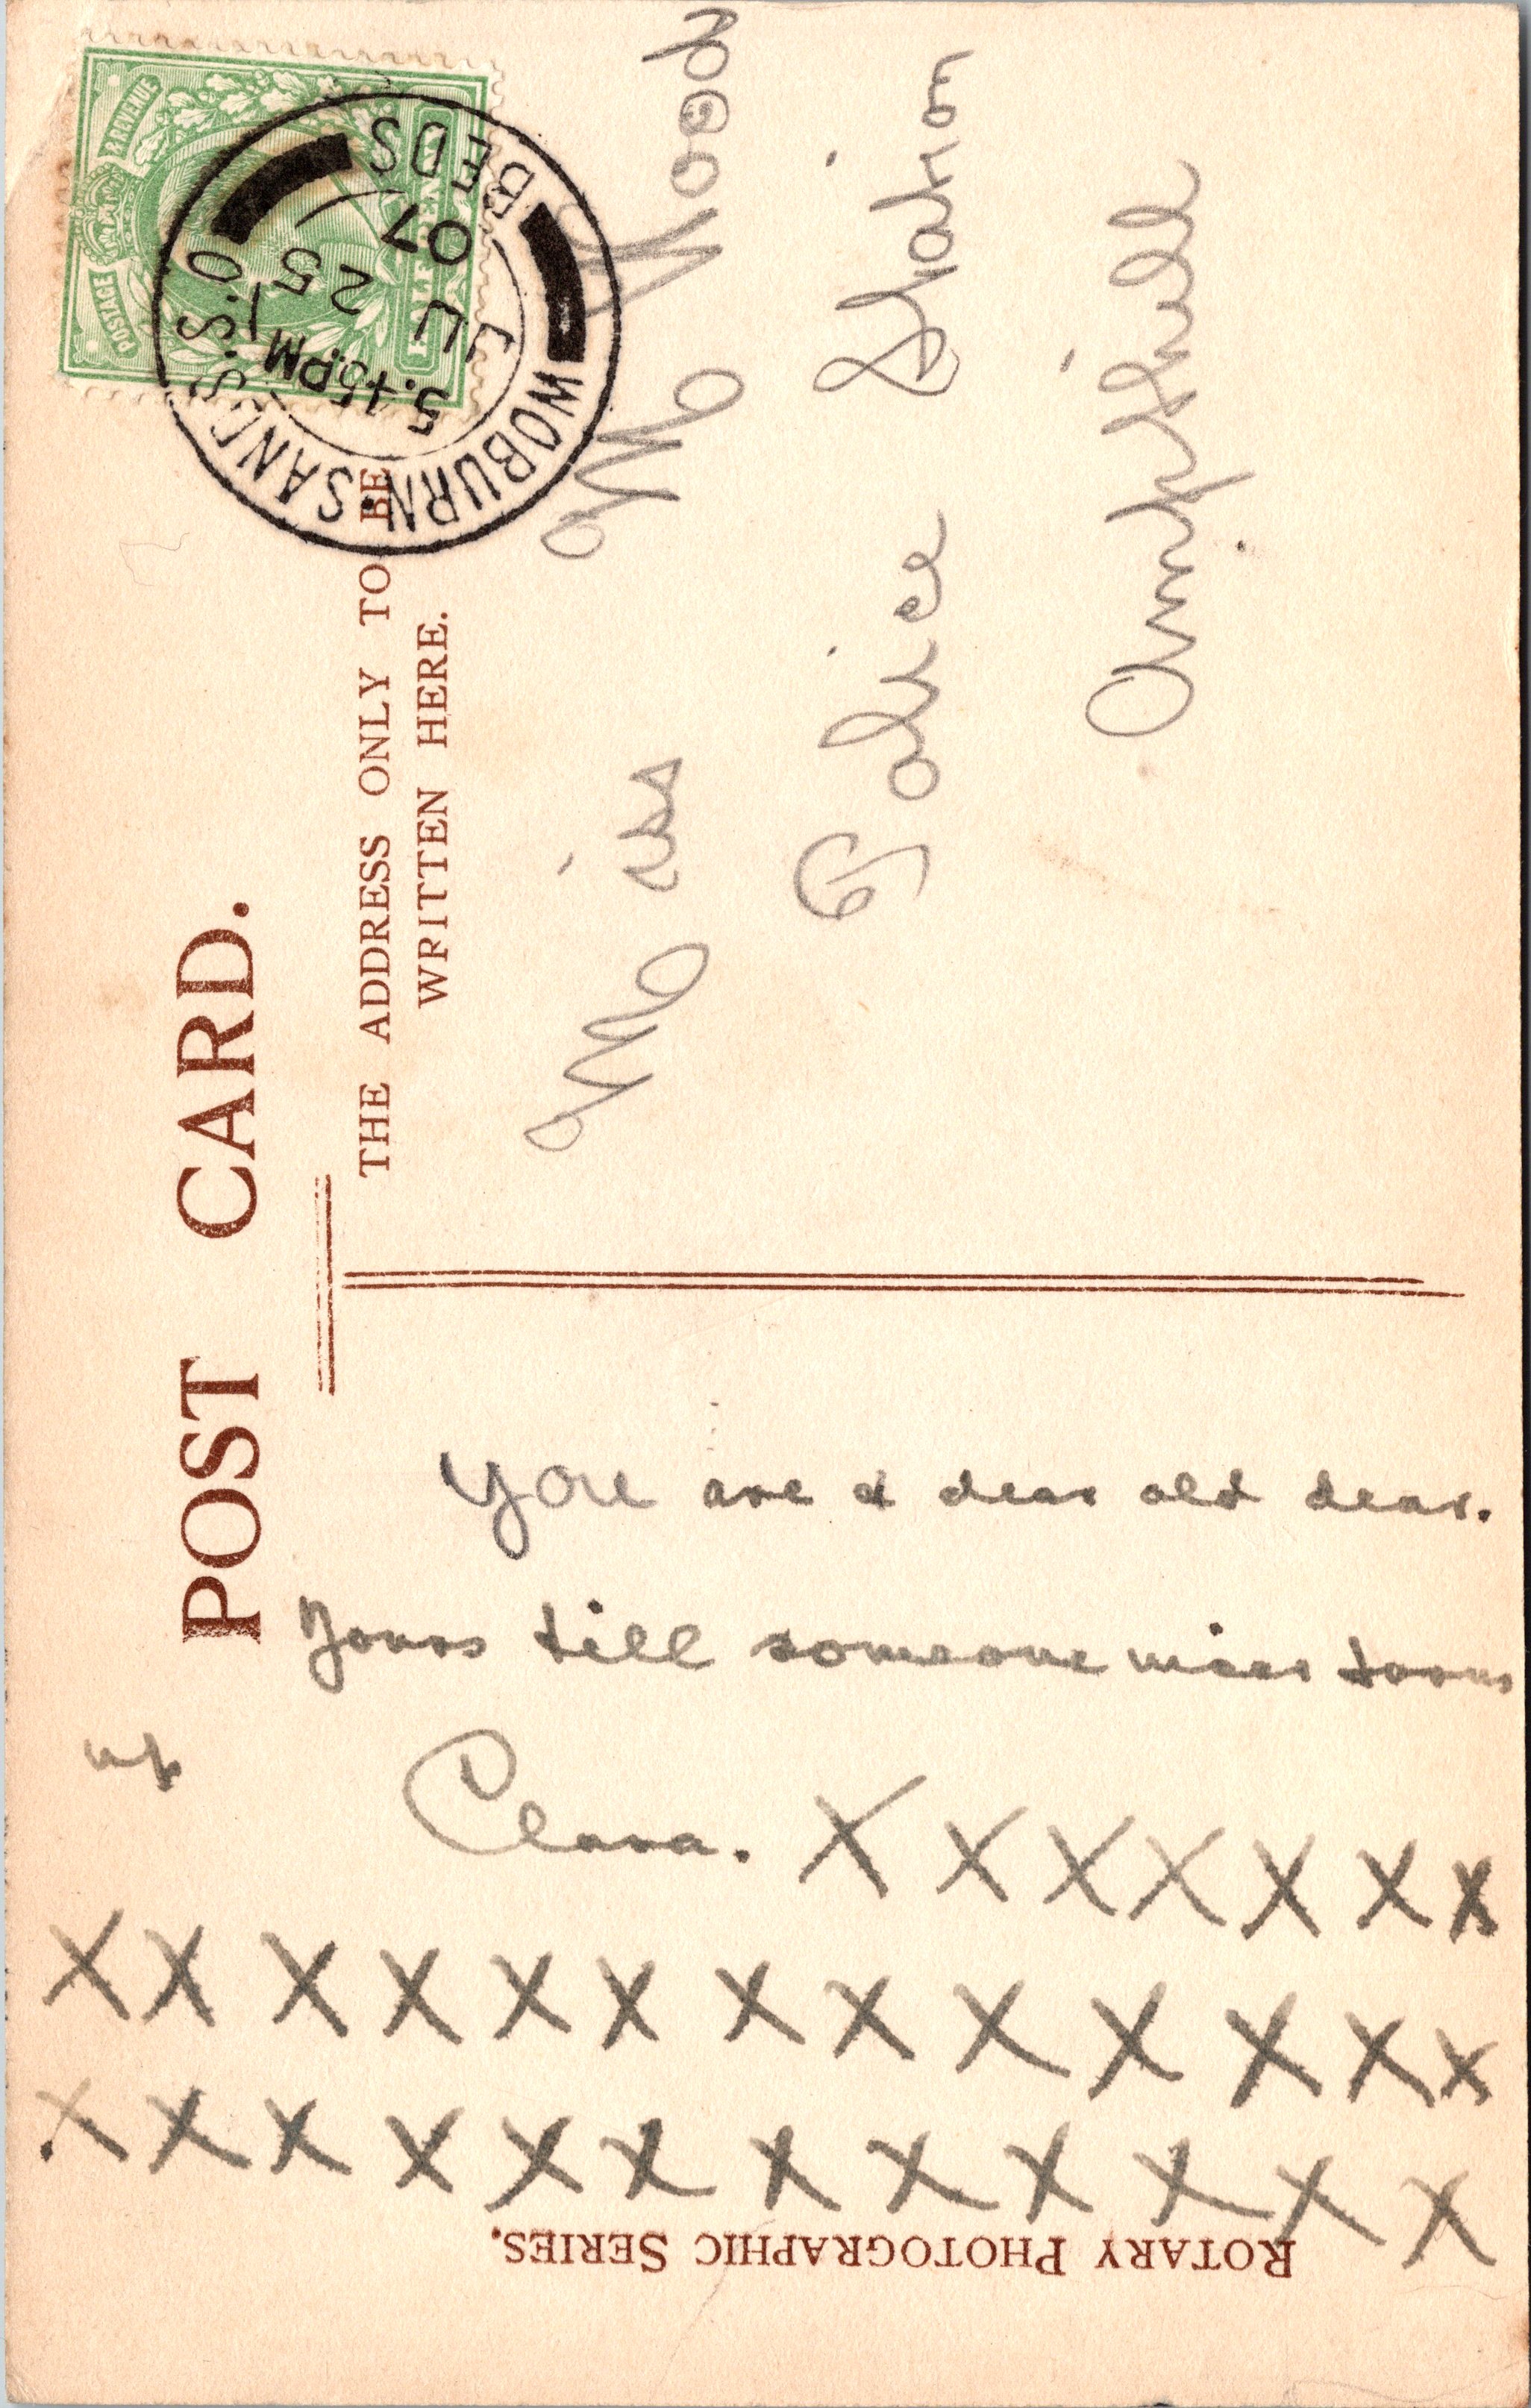 POST CARD.
THE ADDRESS ONLY TO BE
WRITTEN HERE.
POSTAGE & REVENUE
HALF PENNY
WOBURN SANDS S.O.
BEDS
5.45PM
JY 25
07
Miss M Wood
Police Station
Ampthill
You are a dear old dear.
Yours till someone nicer turns
up
Clara. X X X X X X X
X X X X X X X X X X X X X
X X X X X X X X X X X X
ROTARY PHOTOGRAPHIC SERIES.